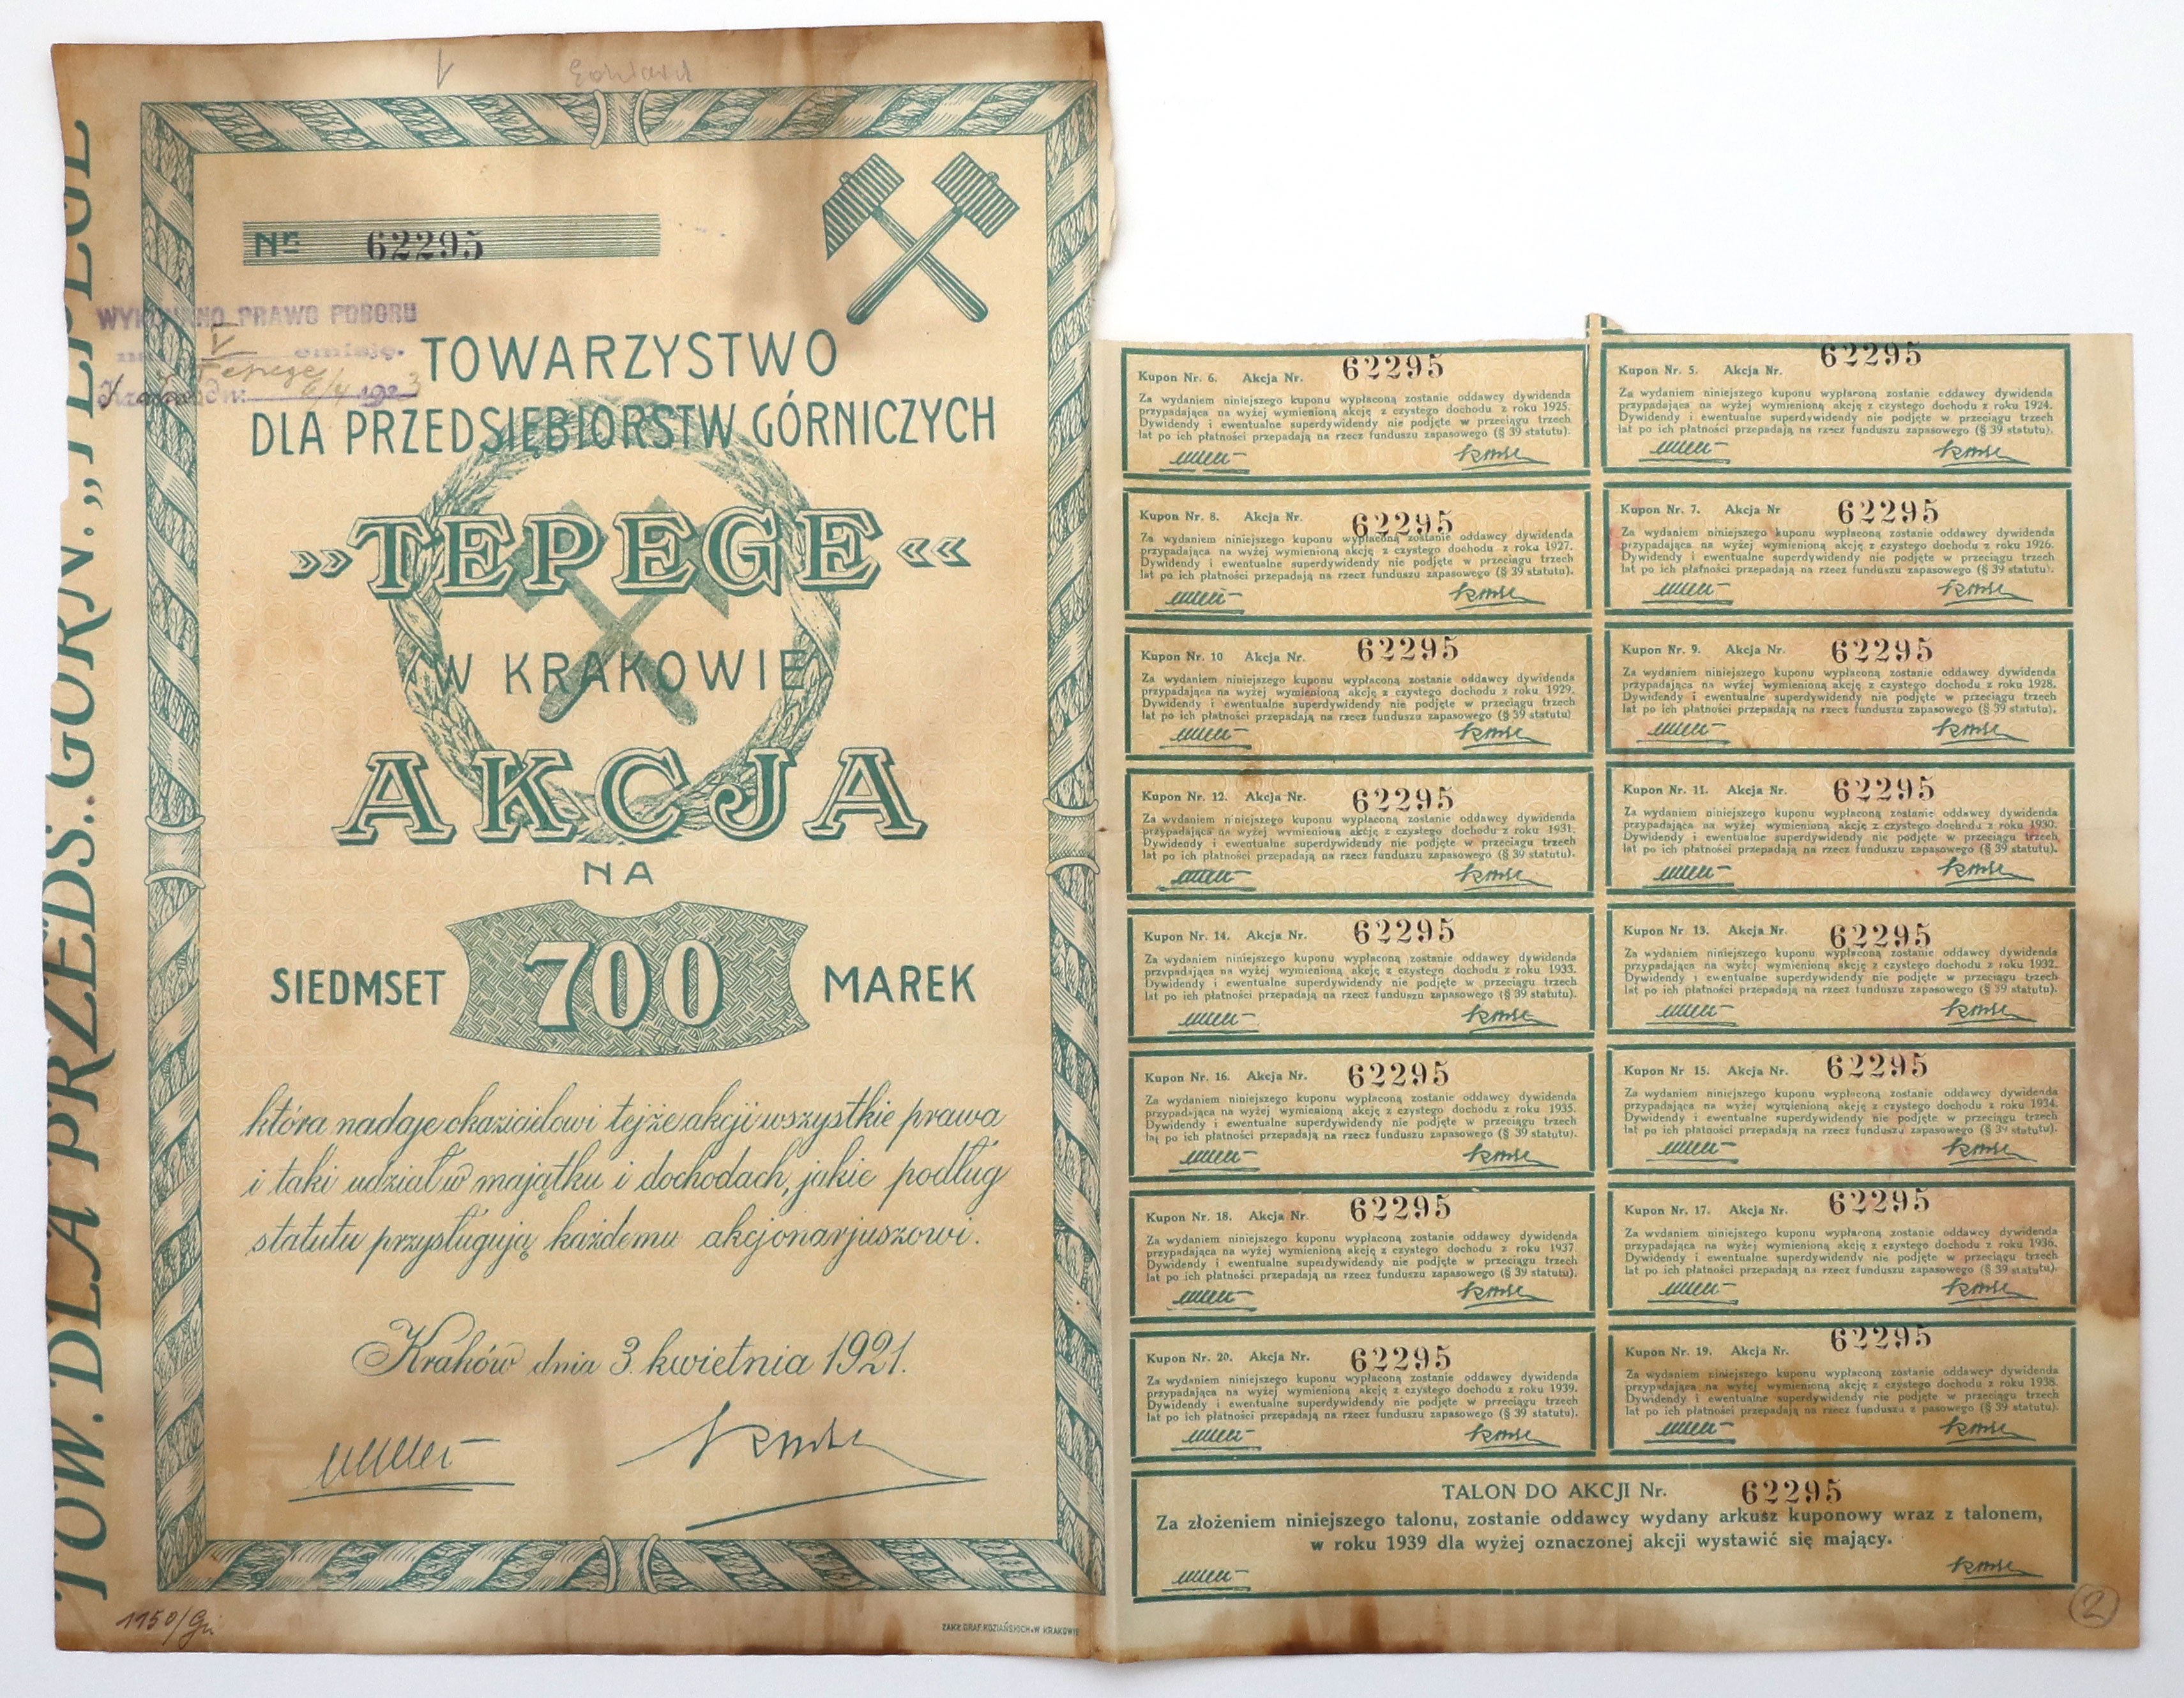 TOW. DLA PRZEDS. GÓRN. „TEPEGE
Nr. 62295
WYKONANO PRAWO POBORU
na V emisję.
Tepege
Kraków dn. 6/4 1923
TOWARZYSTWO
DLA PRZEDSIĘBIORSTW GÓRNICZYCH
»TEPEGE«
W KRAKOWIE
AKCJA
NA
SIEDMSET 700 MAREK
która nadaje okazicielowi tejże akcji wszystkie prawa
i taki udział w majątku i dochodach, jakie podług
statutu przysługują każdemu akcjonarjuszowi.
Kraków dnia 3. kwietnia 1921.
1150/Gr.
ZAKŁ. GRAF. KOZIAŃSKICH W KRAKOWIE
Kupon Nr. 6. Akcja Nr. 62295
Za wydaniem niniejszego kuponu wypłaconą zostanie oddawcy dywidenda
przypadająca na wyżej wymienioną akcję z czystego dochodu z roku 1925.
Dywidendy i ewentualne superdywidendy nie podjęte w przeciągu trzech
lat po ich płatności przepadają na rzecz funduszu zapasowego (§ 39 statutu).
Kupon Nr. 5. Akcja Nr. 62295
Za wydaniem niniejszego kuponu wypłaconą zostanie oddawcy dywidenda
przypadająca na wyżej wymienioną akcję z czystego dochodu z roku 1924.
Dywidendy i ewentualne superdywidendy nie podjęte w przeciągu trzech
lat po ich płatności przepadają na rzecz funduszu zapasowego (§ 39 statutu).
Kupon Nr. 8. Akcja Nr. 62295
Za wydaniem niniejszego kuponu wypłaconą zostanie oddawcy dywidenda
przypadająca na wyżej wymienioną akcję z czystego dochodu z roku 1927.
Dywidendy i ewentualne superdywidendy nie podjęte w przeciągu trzech
lat po ich płatności przepadają na rzecz funduszu zapasowego (§ 39 statutu).
Kupon Nr. 7. Akcja Nr 62295
Za wydaniem niniejszego kuponu wypłaconą zostanie oddawcy dywidenda
przypadająca na wyżej wymienioną akcję z czystego dochodu z roku 1926.
Dywidendy i ewentualne superdywidendy nie podjęte w przeciągu trzech
lat po ich płatności przepadają na rzecz funduszu zapasowego (§ 39 statutu).
Kupon Nr. 10 Akcja Nr. 62295
Za wydaniem niniejszego kuponu wypłaconą zostanie oddawcy dywidenda
przypadająca na wyżej wymienioną akcję z czystego dochodu z roku 1929.
Dywidendy i ewentualne superdywidendy nie podjęte w przeciągu trzech
lat po ich płatności przepadają na rzecz funduszu zapasowego (§ 39 statutu)
Kupon Nr. 9. Akcja Nr. 62295
Za wydaniem niniejszego kuponu wypłaconą zostanie oddawcy dywidenda
przypadająca na wyżej wymienioną akcję z czystego dochodu z roku 1928.
Dywidendy i ewentualne superdywidendy nie podjęte w przeciągu trzech
lat po ich płatności przepadają na rzecz funduszu zapasowego (§ 39 statutu).
Kupon Nr. 12. Akcja Nr. 62295
Za wydaniem niniejszego kuponu wypłaconą zostanie oddawcy dywidenda
przypadająca na wyżej wymienioną akcję z czystego dochodu z roku 1931.
Dywidendy i ewentualne superdywidendy nie podjęte w przeciągu trzech
lat po ich płatności przepadają na rzecz funduszu zapasowego (§ 39 statutu).
Kupon Nr. 11. Akcja Nr. 62295
Za wydaniem niniejszego kuponu wypłaconą zostanie oddawcy dywidenda
przypadająca na wyżej wymienioną akcję z czystego dochodu z roku 1930.
Dywidendy i ewentualne superdywidendy nie podjęte w przeciągu trzech
lat po ich płatności przepadają na rzecz funduszu zapasowego (§ 39 statutu).
Kupon Nr. 14. Akcja Nr. 62295
Za wydaniem niniejszego kuponu wypłaconą zostanie oddawcy dywidenda
przypadająca na wyżej wymienioną akcję z czystego dochodu z roku 1933.
Dywidendy i ewentualne superdywidendy nie podjęte w przeciągu trzech
lat po ich płatności przepadają na rzecz funduszu zapasowego (§ 39 statutu).
Kupon Nr. 13. Akcja Nr. 62295
Za wydaniem niniejszego kuponu wypłaconą zostanie oddawcy dywidenda
przypadająca na wyżej wymienioną akcję z czystego dochodu z roku 1932.
Dywidendy i ewentualne superdywidendy nie podjęte w przeciągu trzech
lat po ich płatności przepadają na rzecz funduszu zapasowego (§ 39 statutu).
Kupon Nr. 16. Akcja Nr. 62295
Za wydaniem niniejszego kuponu wypłaconą zostanie oddawcy dywidenda
przypadająca na wyżej wymienioną akcję z czystego dochodu z roku 1935.
Dywidendy i ewentualne superdywidendy nie podjęte w przeciągu trzech
lat po ich płatności przepadają na rzecz funduszu zapasowego (§ 39 statutu).
Kupon Nr 15. Akcja Nr. 62295
Za wydaniem niniejszego kuponu wypłaconą zostanie oddawcy dywidenda
przypadająca na wyżej wymienioną akcję z czystego dochodu z roku 1934.
Dywidendy i ewentualne superdywidendy nie podjęte w przeciągu trzech
lat po ich płatności przepadają na rzecz funduszu zapasowego (§ 39 statutu).
Kupon Nr. 18. Akcja Nr. 62295
Za wydaniem niniejszego kuponu wypłaconą zostanie oddawcy dywidenda
przypadająca na wyżej wymienioną akcję z czystego dochodu z roku 1937.
Dywidendy i ewentualne superdywidendy nie podjęte w przeciągu trzech
lat po ich płatności przepadają na rzecz funduszu zapasowego (§ 39 statutu).
Kupon Nr. 17. Akcja Nr. 62295
Za wydaniem niniejszego kuponu wypłaconą zostanie oddawcy dywidenda
przypadająca na wyżej wymienioną akcję z czystego dochodu z roku 1936.
Dywidendy i ewentualne superdywidendy nie podjęte w przeciągu trzech
lat po ich płatności przepadają na rzecz funduszu zapasowego (§ 39 statutu).
Kupon Nr. 20. Akcja Nr. 62295
Za wydaniem niniejszego kuponu wypłaconą zostanie oddawcy dywidenda
przypadająca na wyżej wymienioną akcję z czystego dochodu z roku 1939.
Dywidendy i ewentualne superdywidendy nie podjęte w przeciągu trzech
lat po ich płatności przepadają na rzecz funduszu zapasowego (§ 39 statutu).
Kupon Nr. 19. Akcja Nr. 62295
Za wydaniem niniejszego kuponu wypłaconą zostanie oddawcy dywidenda
przypadająca na wyżej wymienioną akcję z czystego dochodu z roku 1938.
Dywidendy i ewentualne superdywidendy nie podjęte w przeciągu trzech
lat po ich płatności przepadają na rzecz funduszu z pasowego (§ 39 statutu).
TALON DO AKCJI Nr. 62295
Za złożeniem niniejszego talonu, zostanie oddawcy wydany arkusz kuponowy wraz z talonem,
w roku 1939 dla wyżej oznaczonej akcji wystawić się mający.
2